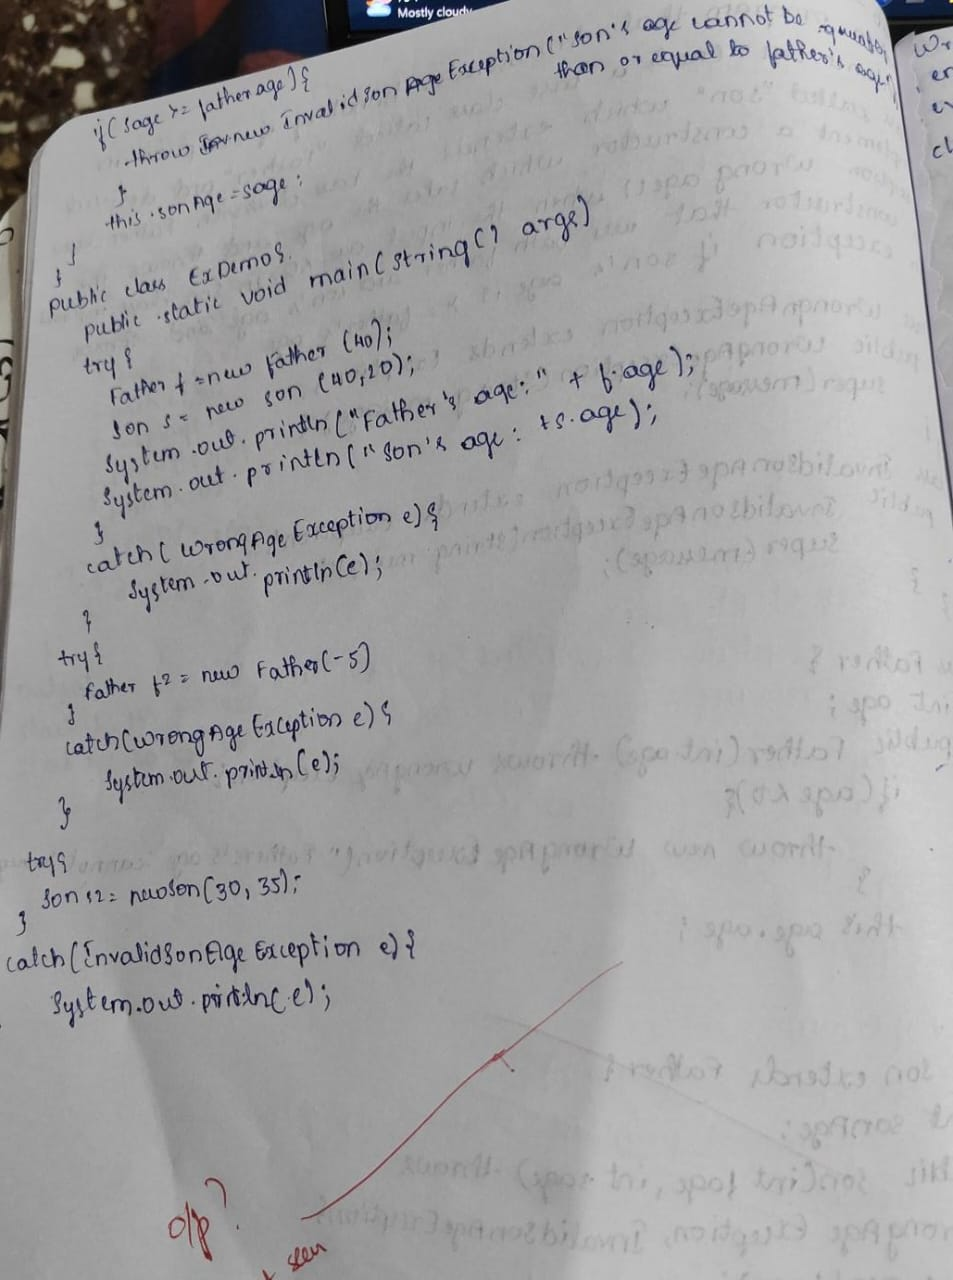 Mostly cloudy
if(sage >= fatherage){
throw new InvalidSonAgeException("son's age cannot be greater
than or equal to father's age")
}
this.sonAge=sage;
}
}
public class ExDemo{
public static void main(string[] args)
try{
Father f =new Father (40);
Son s= new Son (40,20);
System.out.println("Father's age:" + f.age);
System.out.println("Son's age: +s.age);
}
catch(WrongAgeException e){
System.out.println(e);
}
try{
Father f2 = new Father(-5)
}
catch(WrongAgeException e){
System.out.println(e);
}
try{
Son s2= newSon(30, 35);
}
catch(InvalidSonAgeException e){
System.out.println(e);
o/p?
seen